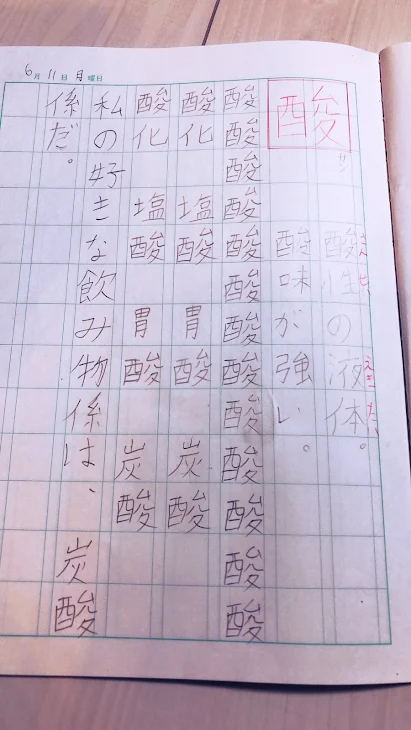 6月11日月曜日
酸
酸性の液体。
酸味が強い。
酸酸酸酸酸酸酸酸酸酸酸酸
酸化 塩酸 胃酸 炭酸
酸化 塩酸 胃酸 炭酸
私の好きな飲み物係は、炭酸
係だ。